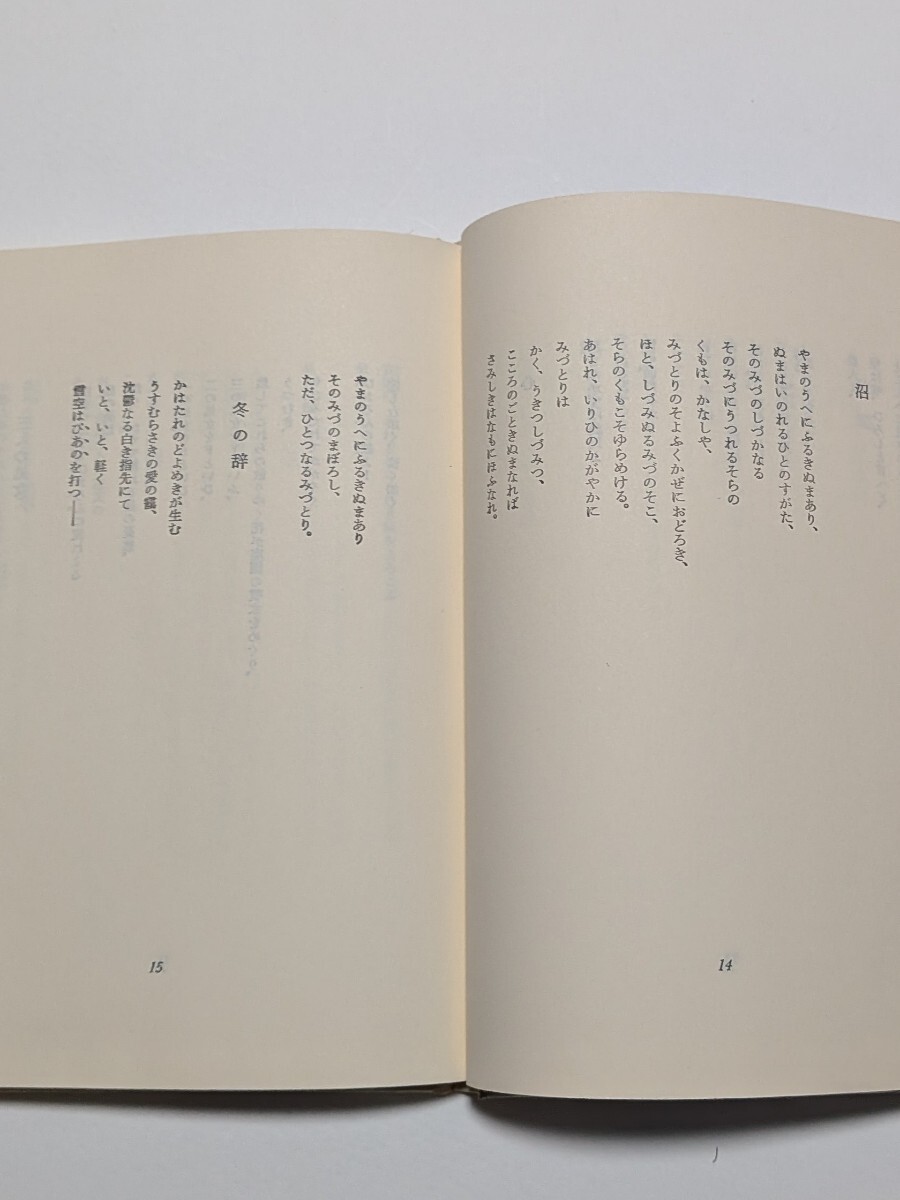 沼
やまのうへにふるきぬまあり、
ぬまはいのれるひとのすがた、
そのみづのしづかなる
そのみづにうつれるそらの
くもは、かなしや、
みづとりのそよふくかぜにおどろき、
ほと、しづみぬるみづのそこ、
そらのくもこそゆらめける。
あはれ、いりひのかがやかに
みづとりは
かく、うきつしづみつ、
こころのごときぬまなれば
さみしきはなもにほふなれ。
14
やまのうへにふるきぬまあり
そのみづのまぼろし、
ただ、ひとつなるみづとり。
冬の辞
かはたれのどよめきが生む
うすむらさきの愛の靄、
沈鬱なる白き指先にて
いと、いと、軽く
雪空はぴあのを打つ――
15